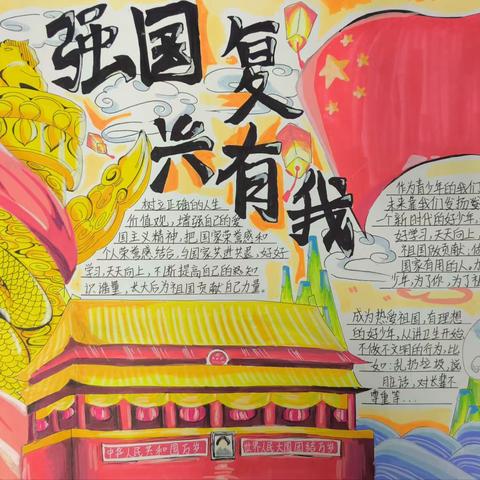 强国复兴有我
树立正确的人生
价值观，增强自己的爱
国主义精神，把国家荣誉感和
个人荣誉感结合，与国家共进共退，好好
学习，天天向上，不断提高自己的知
识海量，长大后为祖国贡献自己力量。
作为青少年的我们
未来靠我们发扬
个新时代的好少年，
好学习，天天向上，
祖国做贡献，做
国家有用的人。
少年，为了你，为了
成为热爱祖国，有理想
的好少年，从讲卫生开始
不做不文明的行为，比
如：乱扔垃圾，说
脏话，对长辈不
尊重等…
中华人民共和国万岁
世界人民大团结万岁